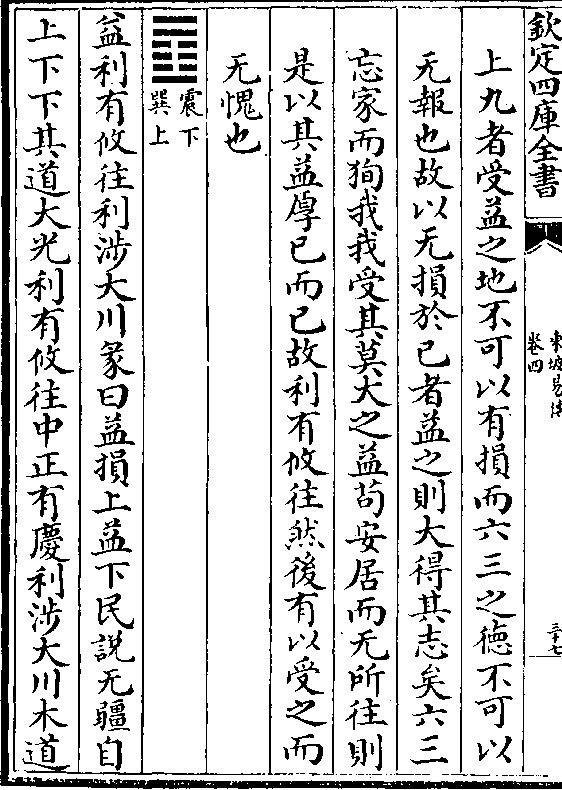 欽定四庫全書
東坡易傳
卷四
三十七
上九者受益之地不可以有損而六三之德不可以
无報也故以无損於已者益之則大得其志矣六三
忘家而狥我我受其莫大之益茍安居而无所往則
是以其益厚已而已故利有攸往然後有以受之而
无愧也
震下
巽上
益利有攸往利涉大川彖曰益損上益下民説无疆自
上下下其道大光利有攸往中正有慶利涉大川木道